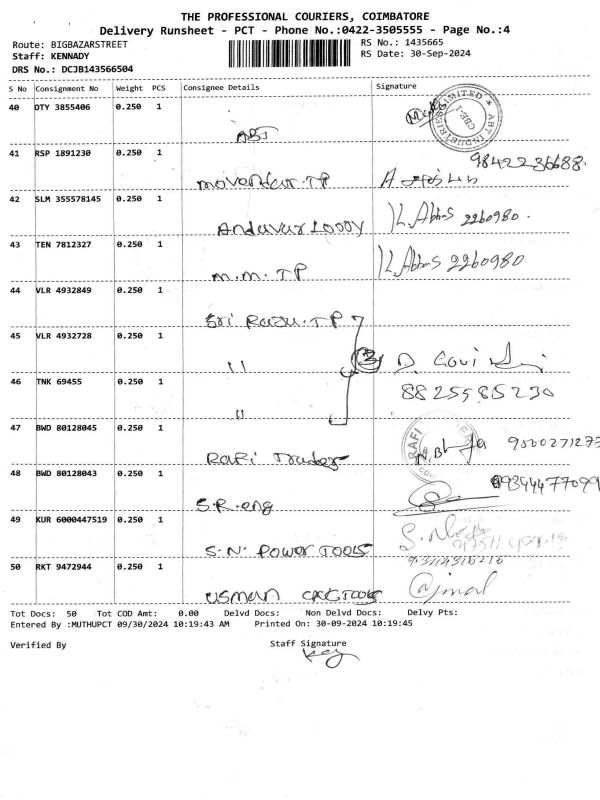 THE PROFESSIONAL COURIERS, COIMBATORE
Delivery Runsheet - PCT - Phone No.:0422-3505555 - Page No.:4
Route: BIGBAZARSTREET
RS No.: 1435665
Staff: KENNADY
RS Date: 30-Sep-2024
DRS No.: DCJB143566504
S No Consignment No Weight PCS Consignee Details Signature
40 OTY 3855406 0.250 1
ABT
ABT INDUSTRIES LIMITED CBE-1
41 RSP 1891230 0.250 1 9842236688.
Movendar. TP
42 SLM 355578145 0.250 1
Andavar Lorry K. Abbas 2260980.
43 TEN 7812327 0.250 1
M.M. TP K. Abbas 2260980
44 VLR 4932849 0.250 1
Sri Raju. TP
45 VLR 4932728 0.250 1
" 3 D. Govi
46 TNK 69455 0.250 1 8825585230
"
47 BWD 80128045 0.250 1 9500271273
RAFI Traders
RAFI
48 BWD 80128043 0.250 1 9344477099
S.R. eng
49 KUR 6000447519 0.250 1
S.N. POWER TOOLS
50 RKT 9472944 0.250 1
USMAN TOOLS @jmal
Tot Docs: 50 Tot COD Amt: 0.00 Delvd Docs: Non Delvd Docs: Delvy Pts:
Entered By :MUTHUPCT 09/30/2024 10:19:43 AM Printed On: 30-09-2024 10:19:45
Verified By Staff Signature